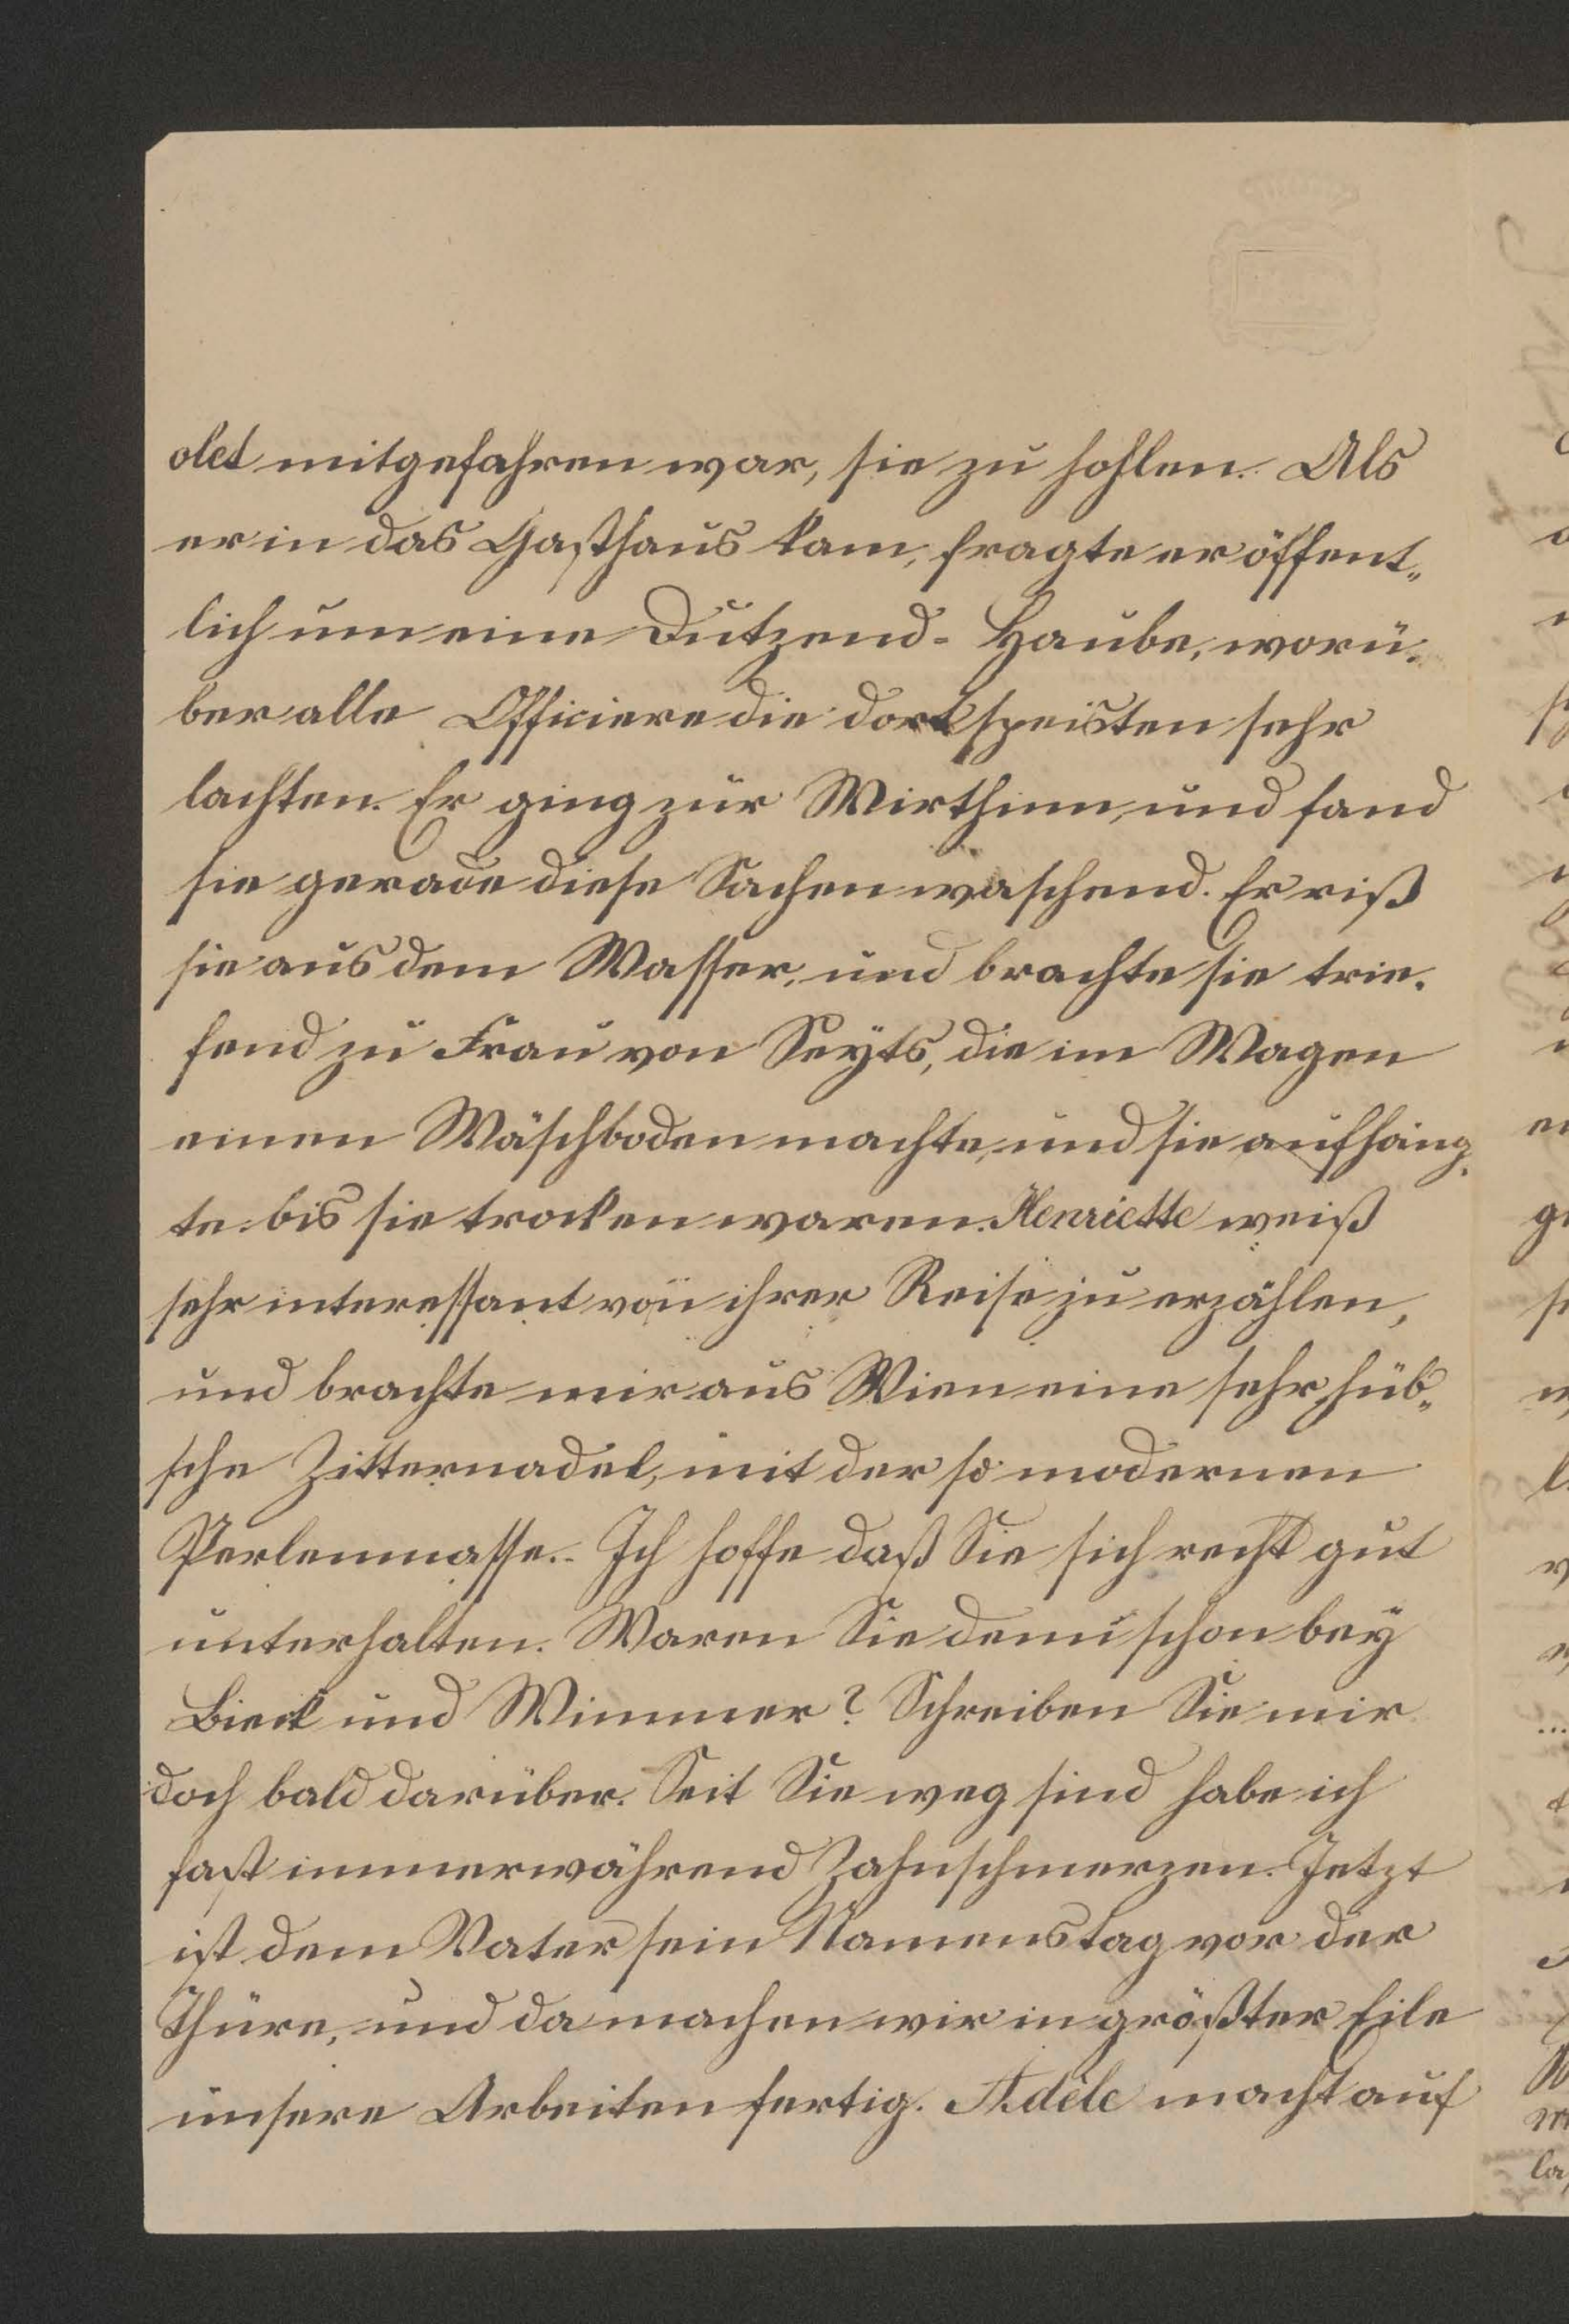 olet mitgefahren war, sie zu hohlen. Als
er in das Gasthaus kam, fragte er öffent„
lich um eine Dutzend-Haube, worü„
ber alle Officiere die dort speisten sehr
lachten. Er ging zur Wirthinn, und fand
sie gerade diese Sachen waschend. Er riß
sie aus dem Wasser, und brachte sie trie„
fend zu Frau von Seyts, die im Wagen
einen Wäschboden machte, und sie aufhäng„
te bis sie trocken waren. Henriette weiß
sehr interessant von ihrer Reise zu erzählen,
und brachte mir aus Wien eine sehr hüb„
sche Zitternadel, mit der so modernen
Perlenmasse. Ich hoffe daß Sie sich recht gut
unterhalten. Waren Sie denn schon bey
Bieck und Wimmer? Schreiben Sie mir
doch bald darüber. Seit Sie weg sind habe ich
fast immerwährend Zahnschmerzen. Jetzt
ist dem Vater sein Namenstag vor der
Thüre, und da machen wir in größter Eile
unsere Arbeiten fertig. Adèle macht auf